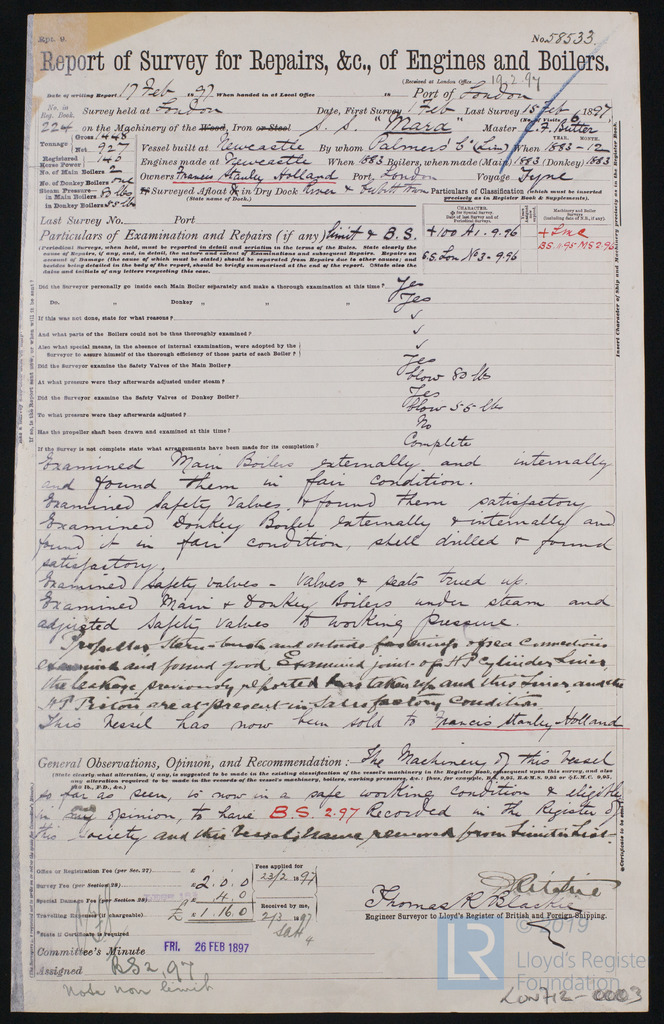 Rpt. 9.
No. 58533.
Report of Survey for Repairs, &c., of Engines and Boilers.
(Received at London Office 19.2.97
Date of writing Report 17 Feb 1897 When handed in at Local Office 18 Port of London
No. in Reg. Book. Survey held at London Date, First Survey 1 Feb Last Survey 15 Feb 1897
(No. of Visits 6)
224 on the Machinery of the Wood, Iron or Steel S. S. "Mara" Master C. F. Butter
Tonnage Gross 1448 Net 927 Vessel built at Newcastle By whom Palmers Co (Lim) When 1883-12
YEAR. MONTH.
Registered Horse Power 140 Engines made at Newcastle When 1883 Boilers, when made (Main) 1883 (Donkey) 1883
No. of Main Boilers 2 Owners Francis Stanley Holland Port London Voyage Tyne
No. of Donkey Boilers one
Steam Pressure in Main Boilers lbs If Surveyed Afloat & in Dry Dock River &
(State name of Dock.)
in Donkey Boilers 55 lbs
Particulars of Classification (which must be inserted precisely as in Register Book & Supplements).
Last Survey No. Port
Particulars of Examination and Repairs (if any) Limit & B.S.
CHARACTER.
+100 A1. 9.96
S.S. Lon No 3-9.96
+ L.M.C.
B.S. 95 MS 2.96
(Periodical Surveys, when held, must be reported in detail and seriatim in the terms of the Rules. State clearly the cause of Repairs, if any, and, in detail, the nature and extent of Examinations and subsequent Repairs. Repairs on account of Damage (the cause of which must be stated) should be separated from Repairs due to other causes; and besides being detailed in the body of the report, should be briefly summarised at the end of the report. State also the dates and initials of any letters respecting this case.
Did the Surveyor personally go inside each Main Boiler separately and make a thorough examination at this time? Yes
Do. Donkey " " " Yes
If this was not done, state for what reasons? ✓
And what parts of the Boilers could not be thoroughly examined? ✓
Also what special means, in the absence of internal examination, were adopted by the Surveyor to assure himself of the thorough efficiency of those parts of each Boiler? ✓
Did the Surveyor examine the Safety Valves of the Main Boiler? Yes
At what pressure were they afterwards adjusted under steam? blow 80 lbs
Did the Surveyor examine the Safety Valves of Donkey Boiler? Yes
To what pressure were they afterwards adjusted? blow 55 lbs
Has the propeller shaft been drawn and examined at this time? No
If the Survey is not complete state what arrangements have been made for its completion? Complete
Examined Main Boilers externally and internally
and found them in fair condition.
Examined Safety Valves, & found them satisfactory
Examined Donkey Boiler externally & internally and
found it in fair condition, shell drilled & found
satisfactory.
Examined safety valves - valves & seats trued up.
Examined Main & Donkey Boilers under steam and
adjusted safety valves to working pressure.
Propeller, Stern-bush and outside fastenings of sea connections
examined and found good. Examined joint of H.P. Cylinder Liner,
the leakage previously reported has taken up and this Liner and the
H.P. Piston are at present in satisfactory condition.
This Vessel has now been sold to Francis Stanley Holland
General Observations, Opinion, and Recommendation:— The Machinery of this Vessel
(State clearly what alteration, if any, is suggested to be made in the existing classification of the vessel's machinery in the Register Book, consequent upon this survey, and also any alteration required to be made in the records of the vessel's machinery, boilers, working pressures, &c.
so far as seen is now in a safe working condition & eligible
in my opinion, to have B.S. 2.97 Recorded in the Register of
this Society and this Vessel's name removed from Limits List.
Office or Registration Fee (per Sec. 27) £
Survey Fee (per Section 28) £ 2.0.0
Special Damage Fee (per Section 28) £ 4.0
Travelling Expenses (if chargeable) £ 1.16.0
Fees applied for 23/2 1897
Received by me, 2/3 1897
*State if Certificate is required
D Ritchie
Thomas R Blackie
Engineer Surveyor to Lloyd's Register of British and Foreign Shipping.
Committee's Minute FRI. 26 FEB 1897
Assigned BS 2,97
Note now limit
© 2019
LR
Lloyd's Register
Foundation
LON712-0003